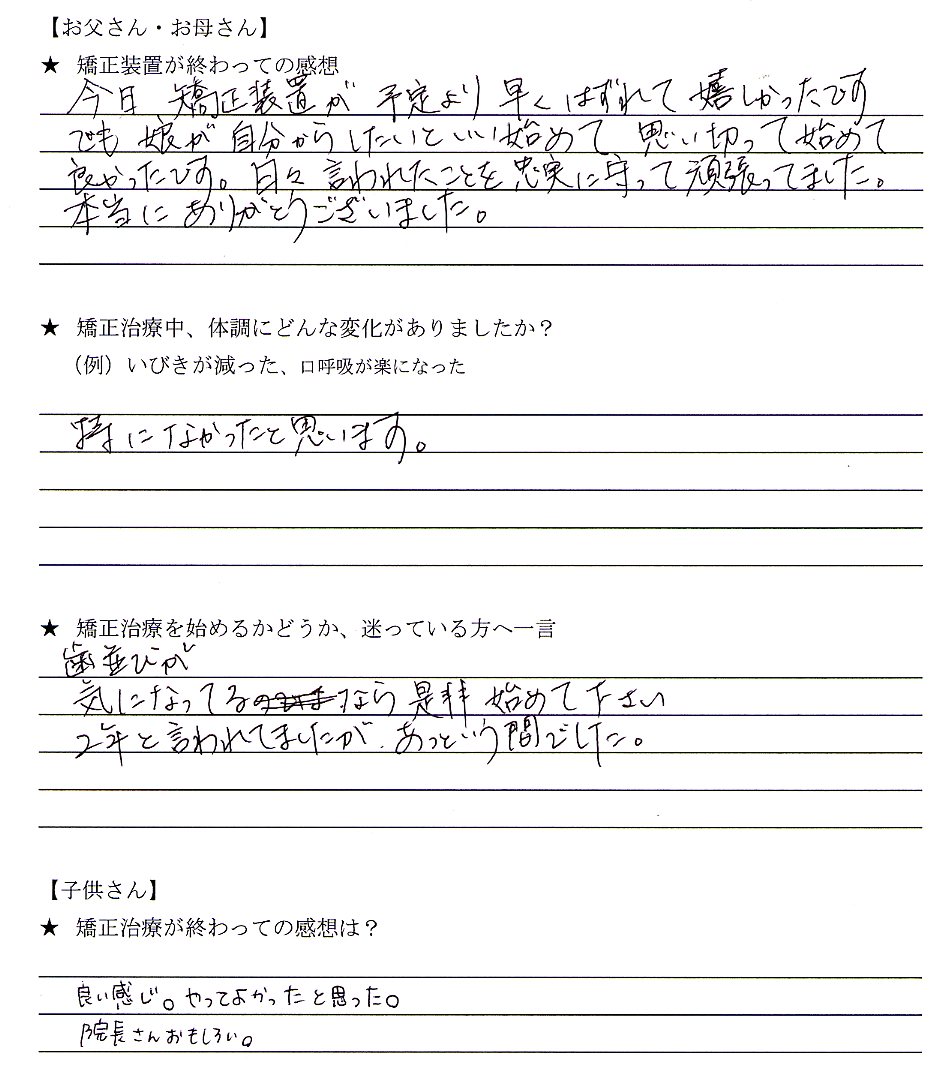 【お父さん・お母さん】
★ 矯正装置が終わっての感想
今日 矯正装置が 予定より 早くはずれて 嬉しかったです
でも 娘が 自分からしたいといい始めて 思い切って始めて
良かったです。日々 言われたことを忠実に守って頑張ってました。
本当に ありがとうございました。
★ 矯正治療中、体調にどんな変化がありましたか？
（例）いびきが減った、口呼吸が楽になった
特になかったと思います。
★ 矯正治療を始めるかどうか、迷っている方へ一言
歯並びが
気になってるなら 是非 始めて下さい
2年と言われてましたが、あっという間でした。
【子供さん】
★ 矯正治療が終わっての感想は？
良い感じ。やってよかったと思った。
院長さんおもしろい。